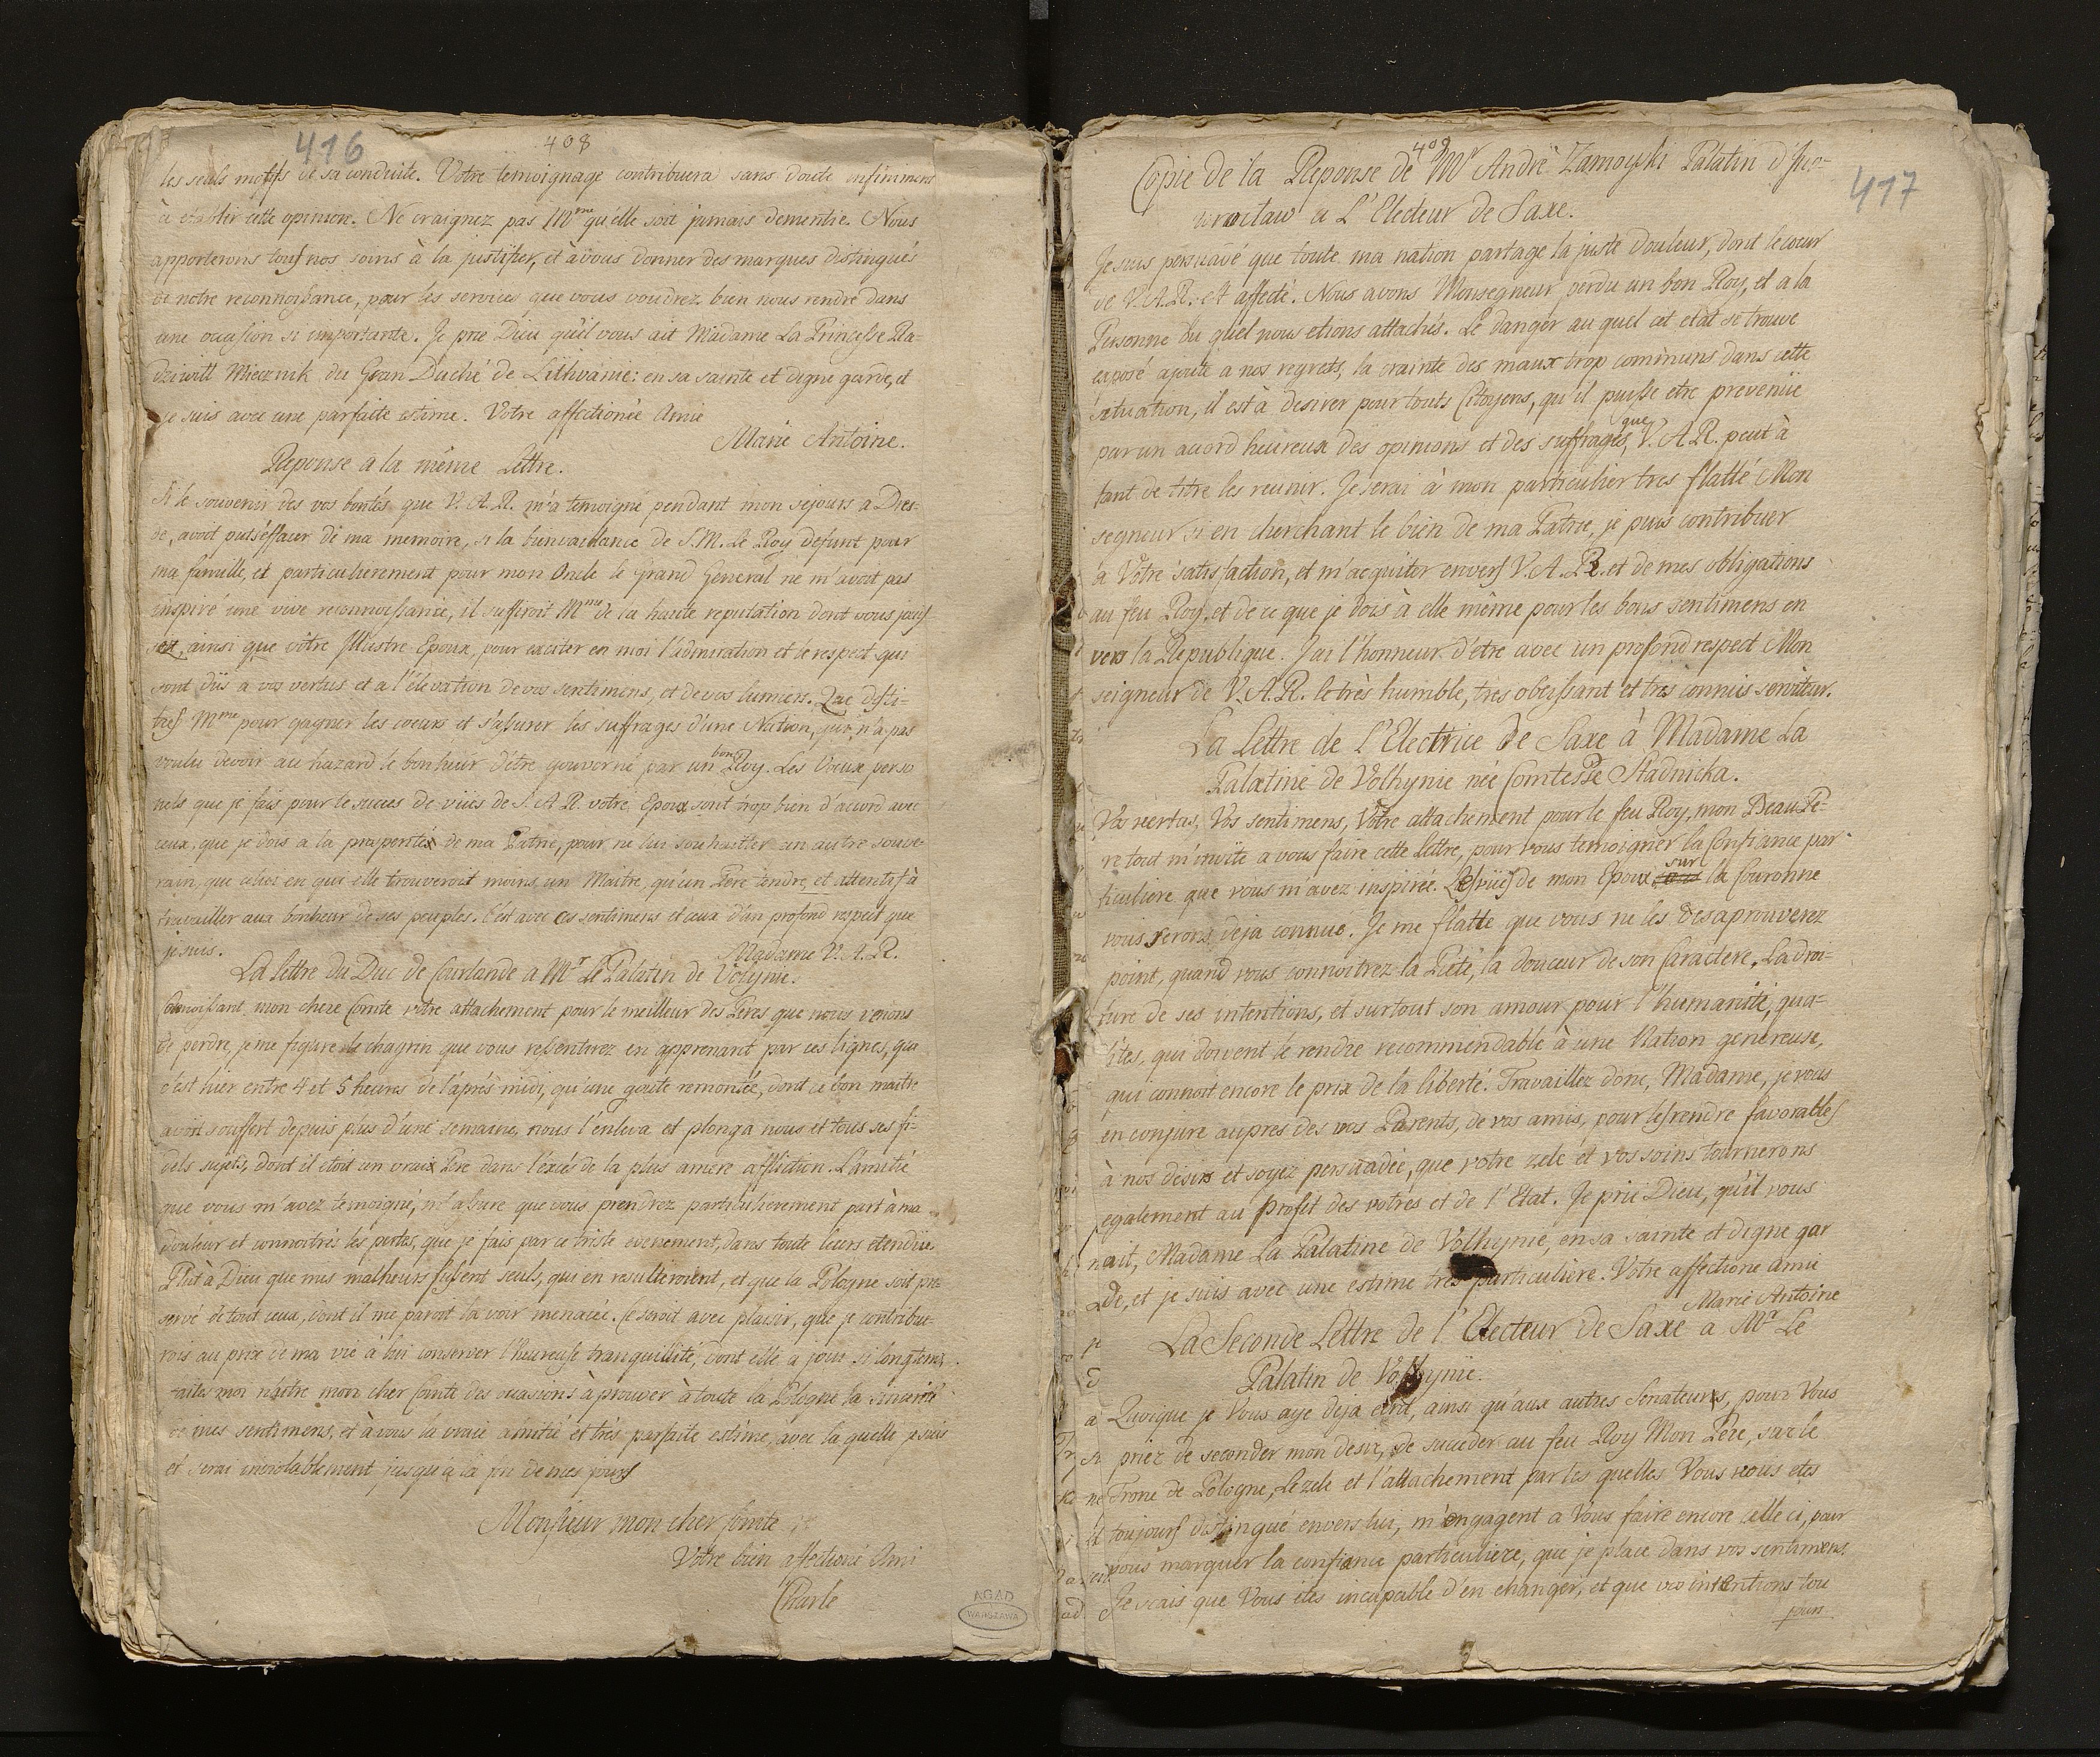 416
408
les seuls motifs de sa conduite. Votre temoignage contribuera sans doute infiniment
à etablir cette opinion. Ne craignez pas Mme qu'elle soit jamais dementie. Nous
apporterons tous nos soins à la justifier, et à vous donner des marques distingués
de notre reconnoissance, pour les services que vous voudrez bien nous rendre dans
une occasion si importante. Je prie Dieu qu'il vous ait Madame La Princesse Ra-
dziwill Miecznik du Gran Duché de Lithvanie: en sa sainte et digne garde, et
je suis avec une parfaite estime. Votre affectionée Amie
Marie Antoine.
Reponse a la même Lettre.
Si le souvenir des vos bontés que V. A. R. m'a temoigné pendant mon sejours a Dres-
de, avoit pu s'effacer de ma memoire, si la bienvaillance de S. M. Le Roy defunt pour
ma famille, et particulierement pour mon Oncle le Grand General ne m'avoit pas
inspiré une vive reconnoissance, il suffiroit Mme de la haute reputation dont vous jouis-
sez, ainsi que vôtre Illustre Epoux, pour exciter en moi l'admiration et le respect qui
sont dûs a vos vertus et a l'élevation de vos sentimens, et de vos lumiers. Que de ti-
tres Mme pour gagner les coeurs et s'assurer les suffrages d'une Nation, qui n'a pas
voulu devoir au hazard le bonheur d'être gouverné par un bon Roy. Les Voeux perso
nels que je fais pour le succes de vües de S. A. R. votre Epoux sont trop bien d'accord avec
ceux, que je dois a la prosperités de ma Patrie, pour ne lui souhaitter un autre souve-
rain, que celui en qui elle trouveroit moins un Maitre, qu'un Pere tendre, et attentif à
travailler aux bonheur de ses peuples. C'est avec ces sentimens et ceux d'un profond respect que
je suis. Madame V. A. R.
La Lettre du Duc de Courlande a Mr Le Palatin de Volynie.
Connoissant mon chere Comte votre attachement pour le meilleur des Peres que nous venons
de perdre, je me figure le chagrin que vous ressentirez en apprenant par ces lignes, que
c'est hier entre 4 et 5 heures de l'après midi, qu'une goute remontée, dont ce bon maitre
avoit souffert depuis plus d'une semaine, nous l'enleva et plonga nous et tous ses fi-
dels sujets, dont il étoit un vraix Pere dans l'excés de la plus amere affliction. L'amitié
que vous m'avez temoigné, m'assure que vous prendrez particulierement part à ma
douleur et connoitrés les pertes, que je fais par ce triste evenement, dans toute leurs etendue.
Plut à Dieu que mes malheurs fussent seuls, qui en resulteroient, et que la Pologne soit pre-
servé de tout ceux, dont il me paroit la voir menacée. Ce seroit avec plaisir, que je contribue-
rois au prix de ma vie à lui conserver l'heureuse tranquillité, dont elle a joui si longtems.
Faites moi naitre mon cher Comte des occasions à prouver à toute la Pologne la sincerité
de mes sentimens, et à vous la vraie amitié et très parfaite estime, avec la quelle je suis
et serai inviolablement jusqu'à la fin de mes jours
Monsieur mon cher Comte
Votre bien affectioné Ami
Charle
AGAD
WARSZAWA
409
417
Copie de la Reponse de Mr André Zamoyski Palatin d'Jno-
wroctaw a L'Electeur de Saxe.
Je suis persuadé que toute ma nation partage la juste douleur, dont le coeur
de V. A. R. est affecté. Nous avons Monsegneur perdu un bon Roy, et a la
Personne du quel nous etions attachés. Le danger au quel cet etat se trouve
exposé ajoute a nos regrets, la crainte des maux trop communs dans cette
situation, il est à desirer pour touts Citoyens, qu'il puisse etre prevenüe
par un accord heureux des opinions et des suffrages, que V. A. R. peut à
tant de titre les reunir. Je serai à mon particulier tres flatté Mon
segneur si en cherchant le bien de ma Patrie, je puis contribuer
a Votre satisfaction, et m'acquiter envers V. A. R. et de mes obligations
au feu Roy, et de ce que je dois à elle même pour les bons sentimens en
vers la Republique. J'ai l'honneur d'etre avec un profond respect Mon
seigneur de V. A. R. le très humble, tres obeissant et tres connuis serviteur.
La Lettre de L'Electrice de Saxe à Madame La
Palatine de Volhynie née Comtesse Stadnicka.
Vos vertus, Vos sentimens, Votre attachement pour le feu Roy, mon Beau Pe-
re tout m'invite a vous faire cette Lettre, pour vous temoigner la Confiance par
ticuliere que vous m'avez inspirée. Les vües de mon Epoux sur la Couronne
vous seront deja connue. Je me flatte que vous ne les desaprouverez
point, quand vous connoitrez la Pieté, la douceur de son Caractere, La droi-
ture de ses intentions, et surtout son amour pour l'humanité, qua-
lites, qui doivent le rendre recommendable à une Nation genereuse,
qui connoit encore le prix de la liberté. Travaillez donc, Madame, je vous
en conjure aupres des vos Parents, de vos amis, pour les rendre favorables
à nos desirs et soyez persuadée, que votre zele et vos soins tournerons
egalement au profit des votres et de l'Etat. Je prie Dieu, qu'il vous
nait, Madame La Palatine de Volhynie, en sa sainte et digne gar
de, et je suis avec une estime très particuliere. Votre affectione amie
Marie Antoine
La Seconde Lettre de l'Electeur de Saxe a Mr Le
Palatin de Volhynie.
Quoique je Vous aye deja ecrit, ainsi qu'aux autres Senateurs, pour Vous
priez de seconder mon desir, de succeder au feu Roy Mon Pere, sur le
Trone de Pologne, Le zele et l'attachement par les quelles Vous vous etes
toujours distingué envers lui, m'engagent a Vous faire encore celle ci, pour
vous marquer la confiance particuliere, que je place dans vos sentimens.
Je scais que Vous étes incapable d'en changer, et que vos intentions tou
jours